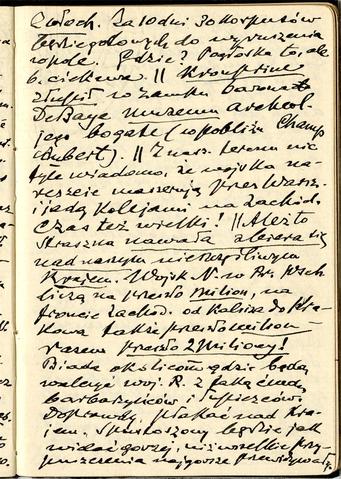 Włoch. Za 10 dni 30 korpusów
będzie gotowych do wyruszenia
w pole. Gdzie? Pogłoska to, ale
b. ciekawa. || Kronprinz
złupił w zamku barona
De Baye muzeum archeol-
jego bogate (w pobliżu Champ
Aubert). || Z nasz. terenu nic
tyle wiadomo, że wojska na-
reszcie maszerują przez Warsz.
i jadą kolejami na zachód.
Czas też wielki! || Ależ to
straszna nawała zbiera się
nad naszym nieszczęśliwym
krajem. Wojsk N. w Pr. Wsch
liczą na przeszło milion, na
froncie zachod. od Kalisza do Kra-
kowa także przeszło milion –
razem przeszło 2 miliony!
Biada okolicom gdzie będą
walczyć woj. R. z taką
barbarzyńców i łupieżców.
Doprawdy płakać nad kra-
jem. Spustoszony będzie jak
widać gorzej, niż wszelkie przy-
puszczenia najgorsze przewidywały.